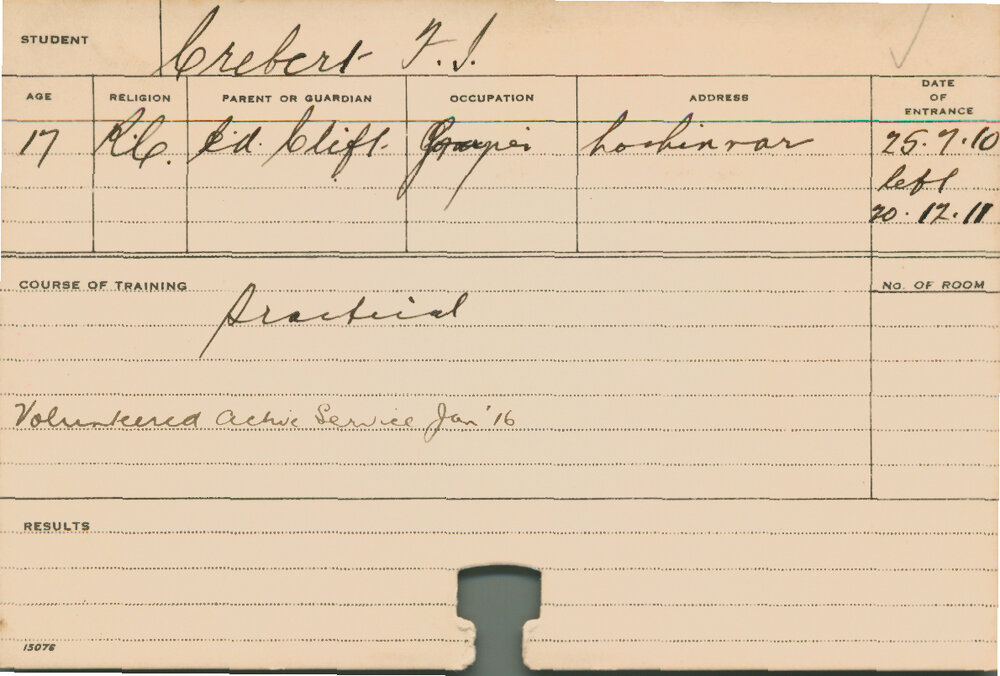 STUDENT Crebert F. J.
AGE RELIGION PARENT OR GUARDIAN OCCUPATION ADDRESS DATE OF ENTRANCE
17 R.C. Ed. Clift. Grazier Lochinvar 25.7.10
left
20.12.11
COURSE OF TRAINING No. OF ROOM
Practical
Volunteered Active Service Jan '16
RESULTS
15076